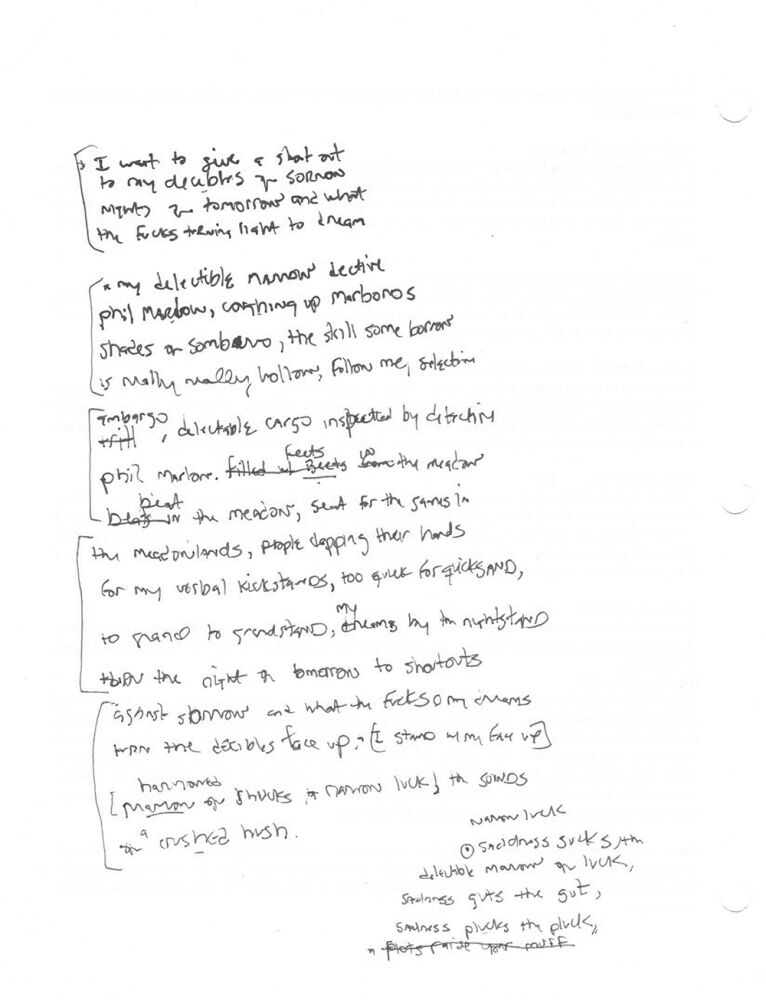 I want to give a shot out
to my decibles of sorrow
nights of tomorrow and what
the fucks turning light to dream
my delectible marrow dective
phil Marlow, coughing up marboros
shades or sombrero, the skill some borrow
is really really hollow, follow me, selective
embargo, delectable cargo inspected by detective
trill
phil Marlow. filled w/ Beets from the meadow
feets
beat
beats in the meadow, seat for the games in
the meadowlands, people clapping their hands
for my verbal kickstands, too quick for quicksAND,
to grand to grandstand, my dreams by the nightstand
turn the night of tomorrow to shoutouts
against sorrow and what the fucks o my dreams
turn the decibles face up, [I stand w/ my face up]
harrowed
[marrow of shucks, narrow luck] the sounds
of a crushed hush.
narrow luck
sadness sucks, the
delectible marrow of luck,
sadness guts the gut,
sadness plucks the pluck,